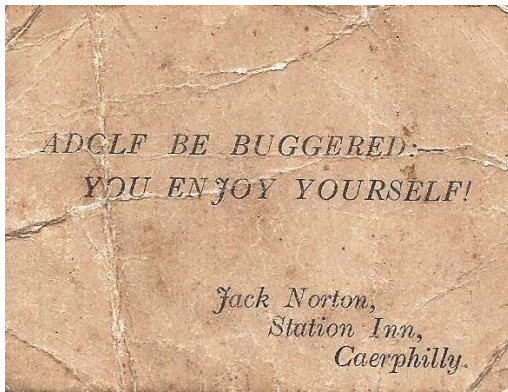 ADOLF BE BUGGERED:—
YOU ENJOY YOURSELF!
Jack Norton,
Station Inn,
Caerphilly.